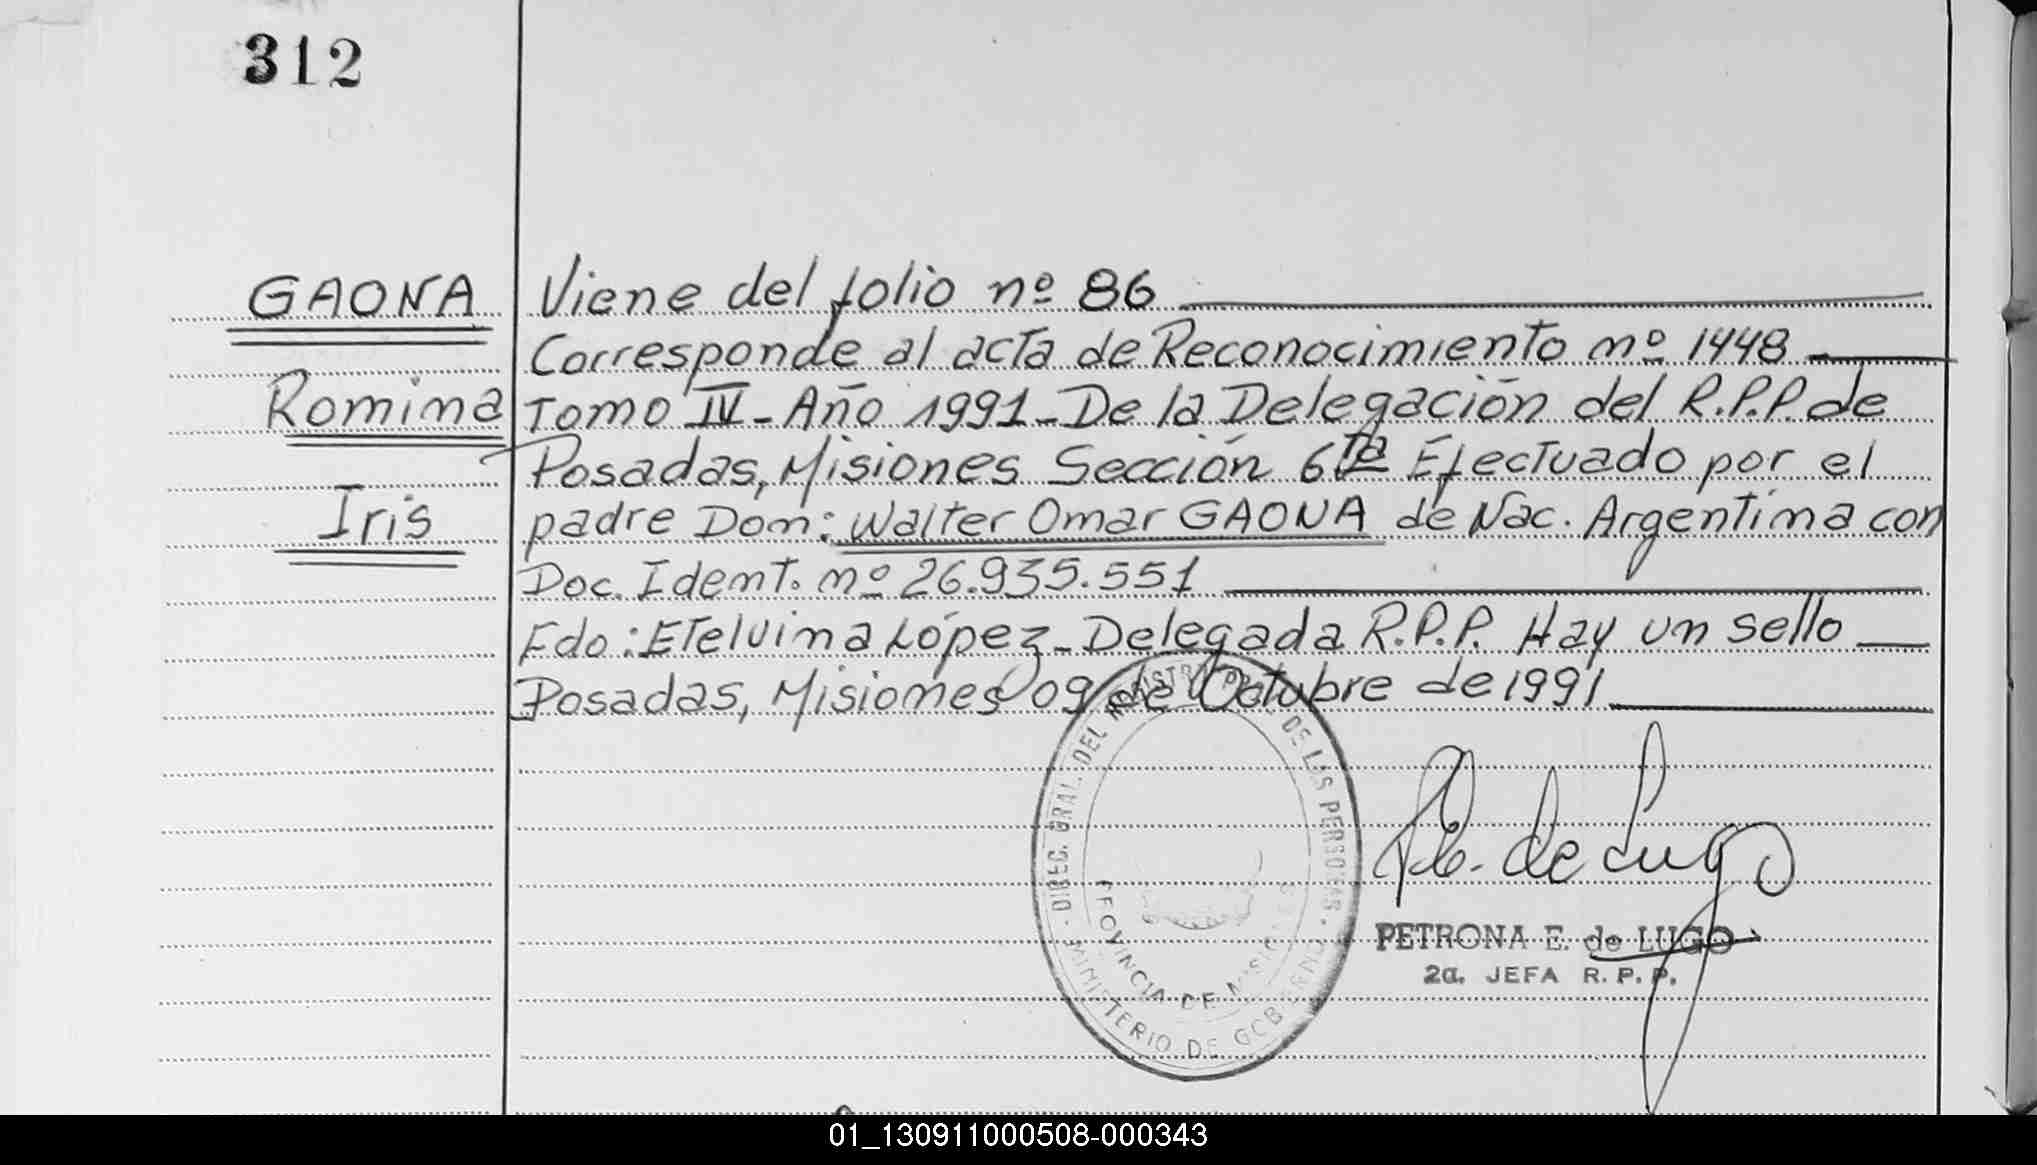 312
GAONA
Romina
Iris
Viene del folio nº 86
Corresponde al acta de Reconocimiento nº 1448
Tomo IV - Año 1991 - De la Delegación del R.P.P. de
Posadas, Misiones Sección 6ta Efectuado por el
padre Don: Walter Omar GAONA de Nac. Argentina con
Doc. Ident. nº 26.935.551
Fdo: Etelvina López - Delegada R.P.P. Hay un sello
Posadas, Misiones 09 de Octubre de 1991
DIREC. GRAL. DEL REGISTRO PROV. DE LAS PERSONAS
MINISTERIO DE GOBIERNO
PROVINCIA DE MISIONES
de Lugo
PETRONA E. de LUGO
2a. JEFA R. P. P.
01_130911000508-000343